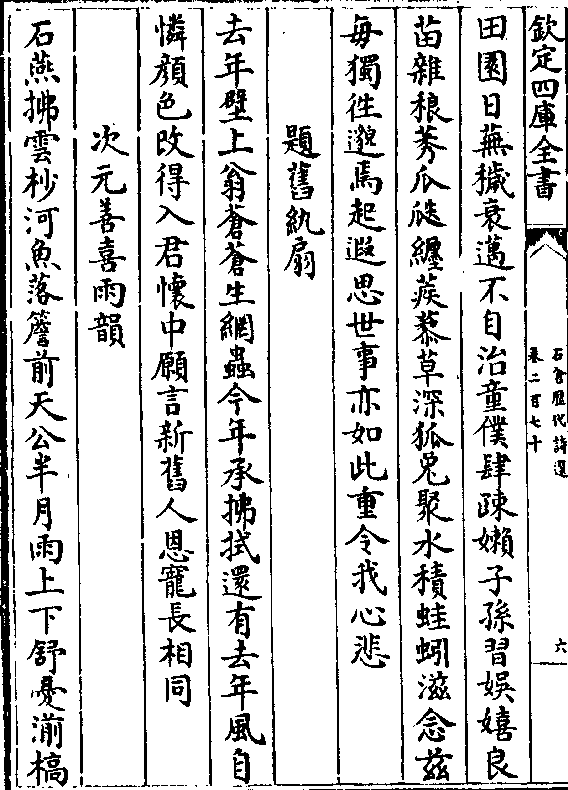 欽定四庫全書
石倉歷代詩選
卷二百七十
六
田園日蕪穢衰邁不自治童僕肆疎嬾子孫習娛嬉良
苗雜稂莠瓜瓞纏蒺藜草深狐兎聚水積蛙蚓滋念茲
每獨徃邈焉起遐思世事亦如此重令我心悲
題舊紈扇
去年壁上翁蒼蒼生網蟲今年承拂拭還有去年風自
憐顔色改得入君懷中願言新舊人恩寵長相同
次元善喜雨韻
石燕拂雲杪河魚落簷前天公半月雨上下舒憂湔槁